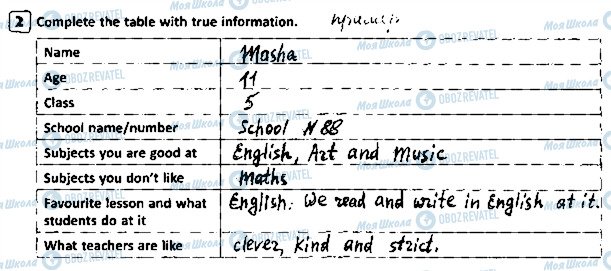 2 Complete the table with true information. приклад
Name Masha
Age 11
Class 5
School name/number School N 88
Subjects you are good at English, Art and Music
Subjects you don't like maths
Favourite lesson and what English: We read and write in English at it.
students do at it
What teachers are like clever, kind and strict.